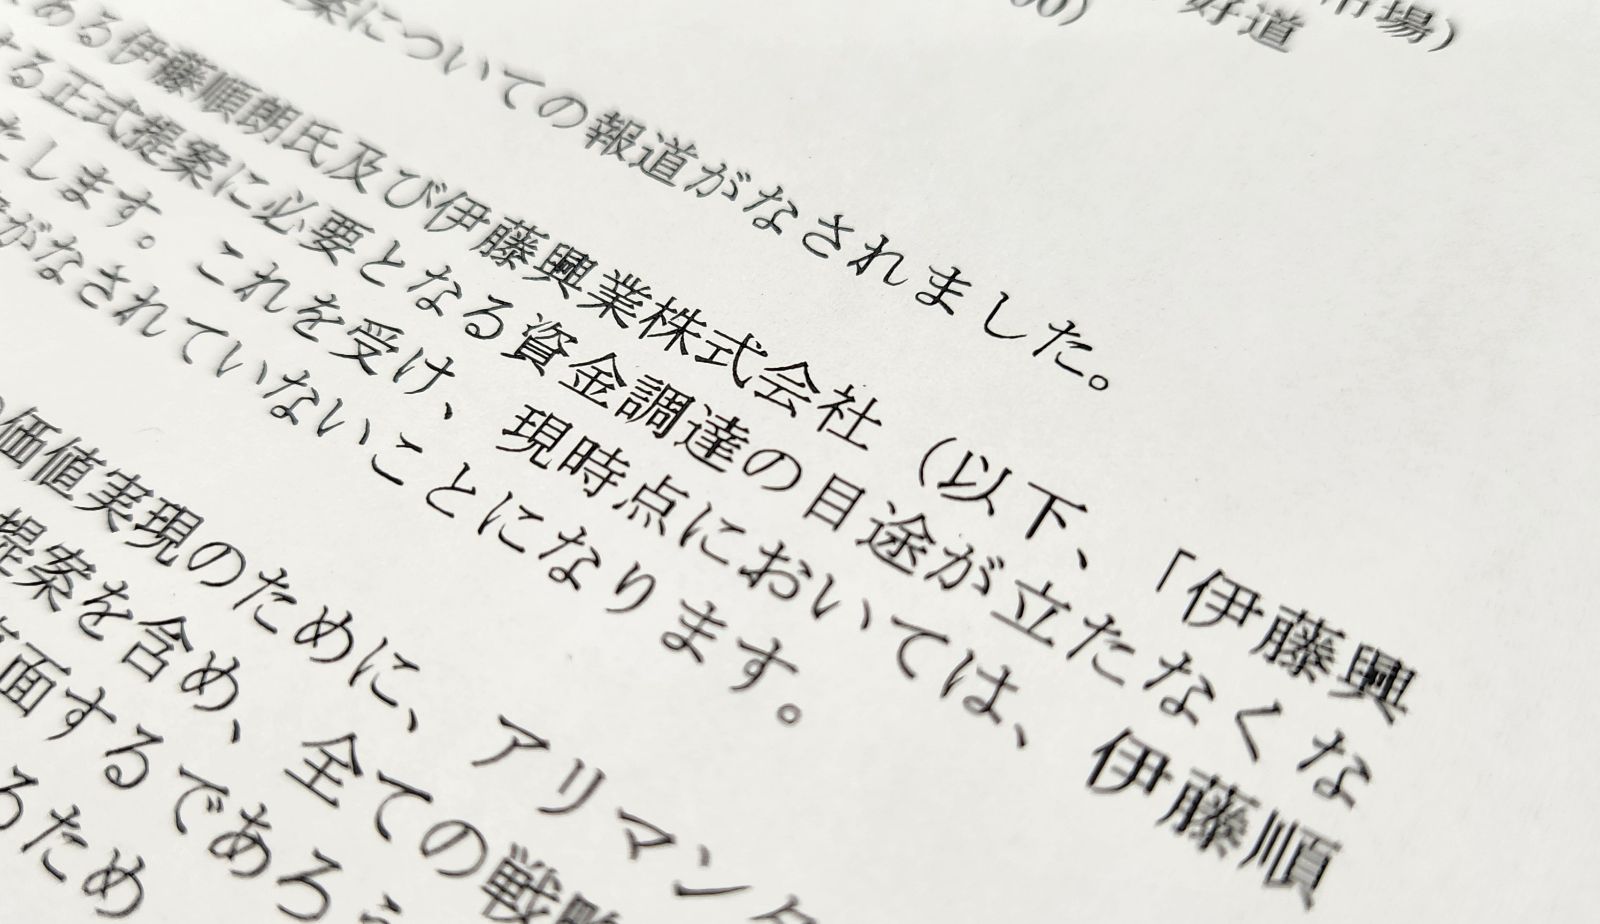 市場）
00）
好道
案についての報道がなされました。
ある伊藤順朗氏及び伊藤興業株式会社（以下、「伊藤興
する正式提案に必要となる資金調達の目途が立たなくな
たします。これを受け、現時点においては、伊藤順
がなされていないことになります。
価値実現のために、アリマンタ
提案を含め、全ての戦略
面するであろう
るため